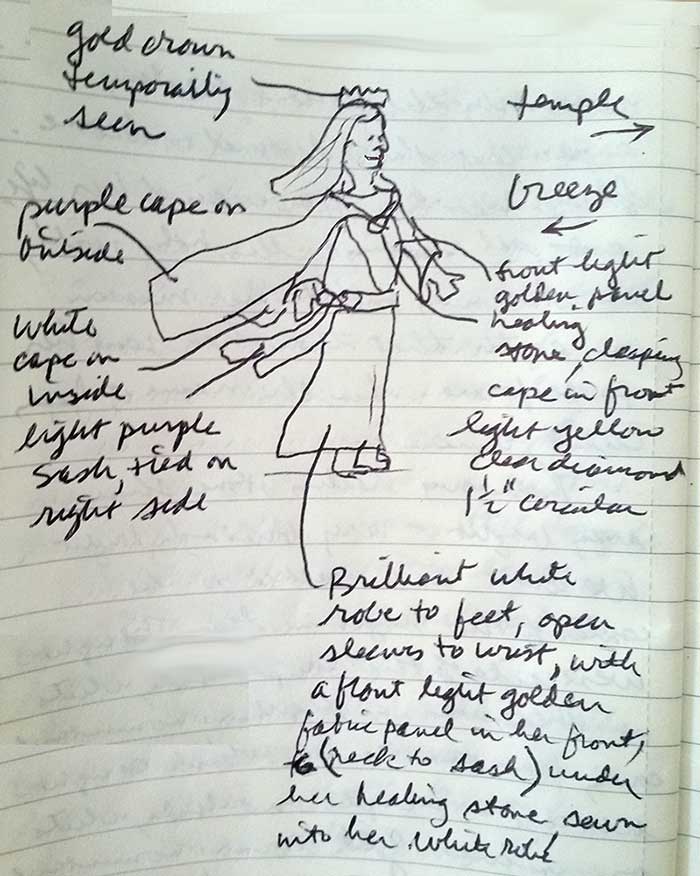 gold crown
temporarily
seen
temple
breeze
purple cape on
outside
white
cape on
inside
light purple
sash, tied on
right side
front light
golden panel
healing
stone, clasping
cape in front
light yellow
clear diamond
1 1/2" circular
Brilliant white
robe to feet, open
sleeves to wrist, with
a front light golden
fabric panel in her front,
(neck to sash) under
her healing stone, sewn
into her white robe